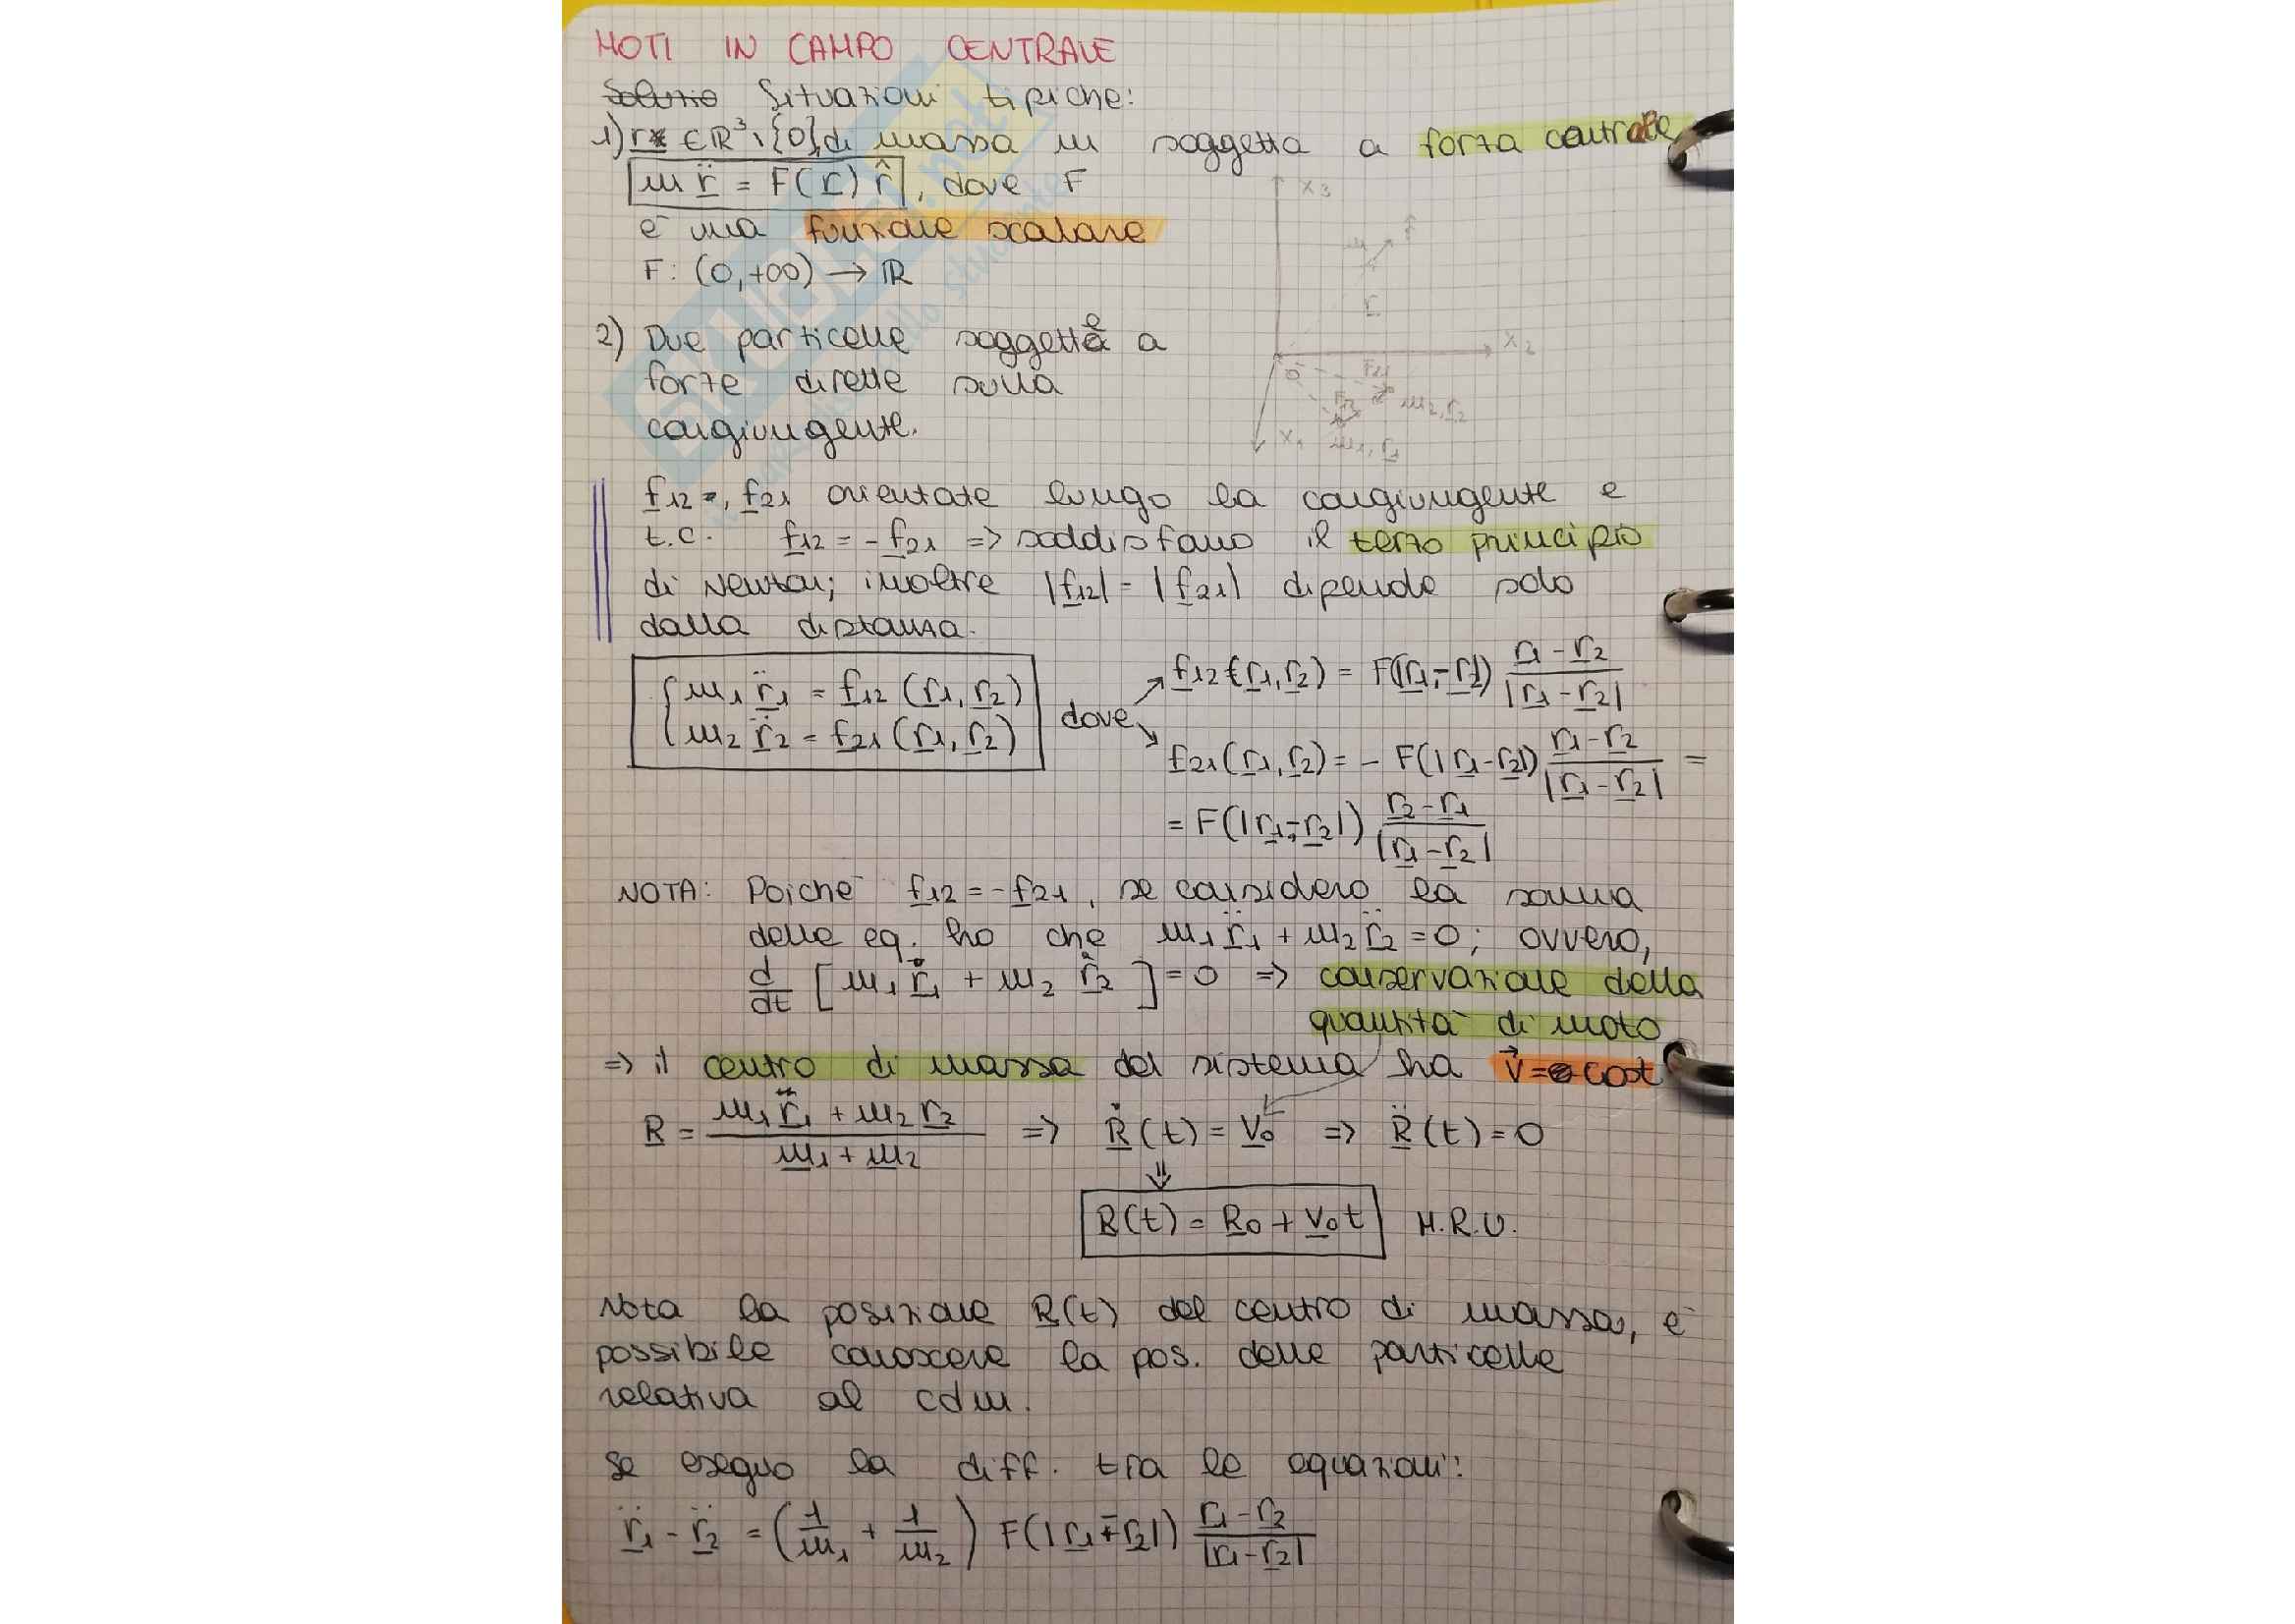 MOTI IN CAMPO CENTRALE
Soluzio Situazioni tipiche:
1) r ∈ ℝ³\{0} di massa m soggetta a forza centrale
m r̈ = F(r) r̂, dove F
è una funzione scalare
F: (0,+∞) → ℝ
x3
m
f
r
x2
O
x1
F21
F12
m2, r2
m1, r1
2) Due particelle soggette a
forze dirette sulla
congiungente.
f12, f21 orientate lungo la congiungente e
t.c. f12 = -f21 => soddisfano il terzo principio
di Newton; inoltre |f12| = |f21| dipende solo
dalla distanza.
{ m1 r̈1 = f12 (r1, r2)
m2 r̈2 = f21 (r1, r2)
dove
f12 (r1, r2) = F(|r1-r2|) (r1-r2)/|r1-r2|
f21 (r1, r2) = - F(|r1-r2|) (r1-r2)/|r1-r2| =
= F(|r1-r2|) (r2-r1)/|r1-r2|
NOTA: Poiché f12 = -f21, se considero la somma
delle eq. ho che m1 r̈1 + m2 r̈2 = 0; ovvero,
d/dt [m1 ṙ1 + m2 ṙ2] = 0 => conservazione della
quantità di moto
=> il centro di massa del sistema ha v⃗ = cost
R = (m1 r1 + m2 r2)/(m1 + m2) => Ṙ(t) = V0 => R̈(t) = 0
⇓
R(t) = R0 + V0 t M.R.U.
Nota la posizione R(t) del centro di massa, è
possibile conoscere la pos. delle particelle
relativa al cdm.
Se eseguo la diff. tra le equazioni:
r̈1 - r̈2 = (1/m1 + 1/m2) F(|r1-r2|) (r1-r2)/|r1-r2|